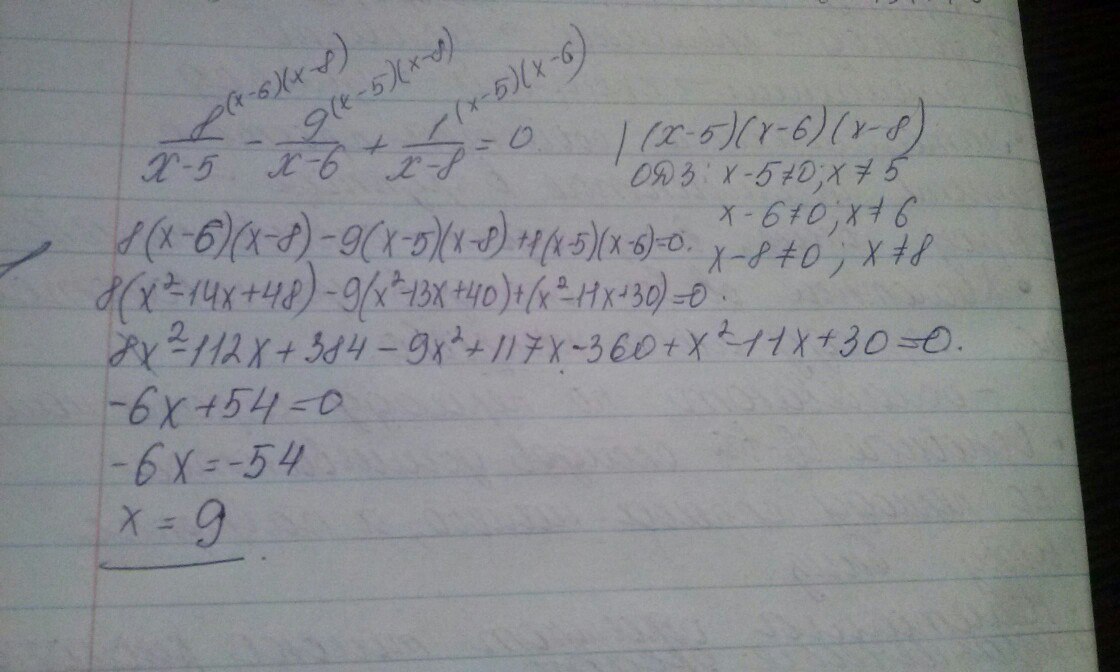 8^(x-6)(x-8) / x-5 - 9^(x-5)(x-8) / x-6 + 1^(x-5)(x-6) / x-8 = 0. | (x-5)(x-6)(x-8)
ОДЗ: x-5≠0; x≠5
x-6≠0; x≠6
x-8≠0; x≠8
8(x-6)(x-8) - 9(x-5)(x-8) + 1(x-5)(x-6) = 0.
8(x²-14x+48) - 9(x²-13x+40) + (x²-11x+30) = 0.
8x²-112x + 384 - 9x² + 117x - 360 + x² - 11x + 30 = 0.
-6x + 54 = 0
-6x = -54
x = 9.